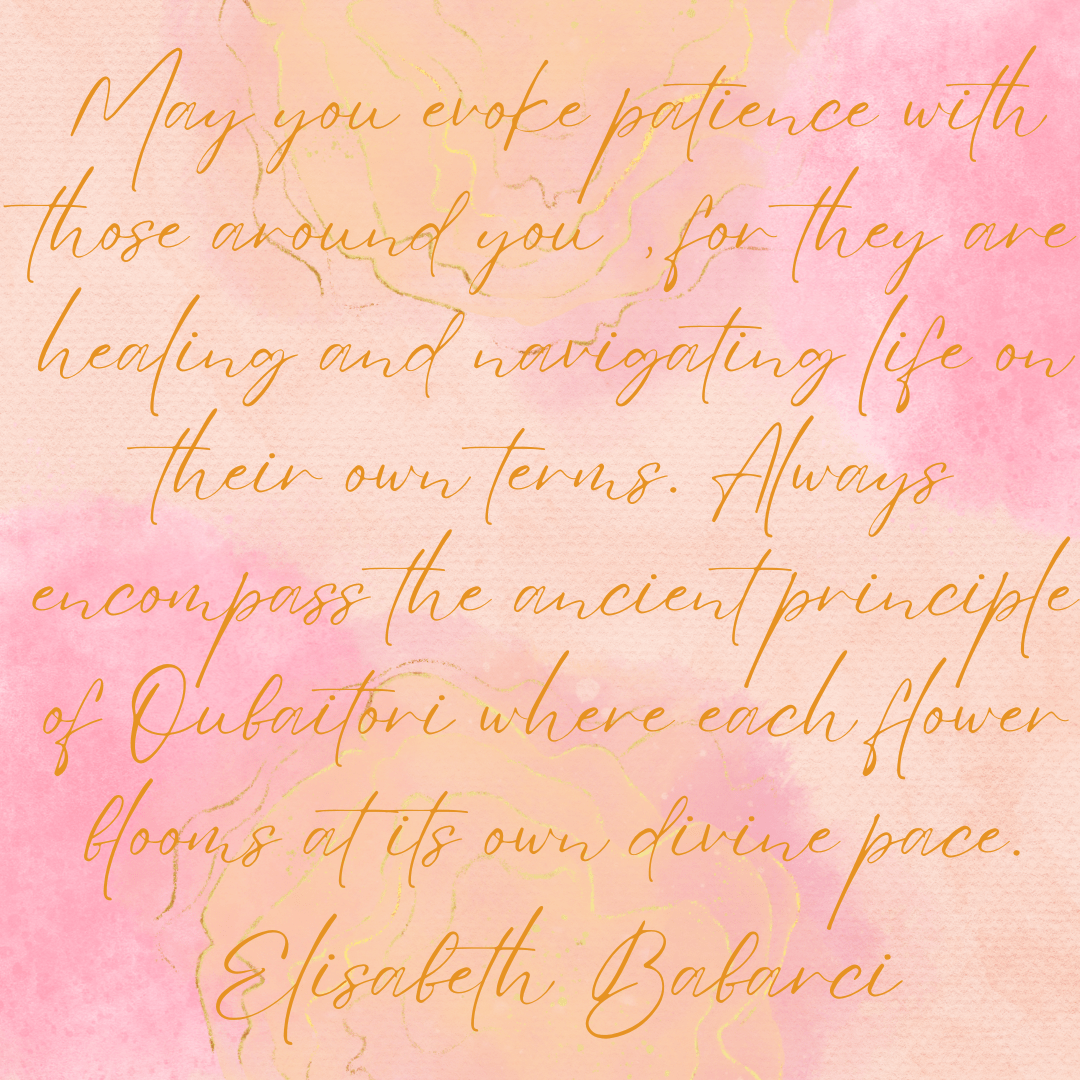 May you evoke patience with
those around you , for they are
healing and navigating life on
their own terms. Always
encompass the ancient principle
of Oubaitori where each flower
blooms at its own divine pace.
Elisabeth Babarci